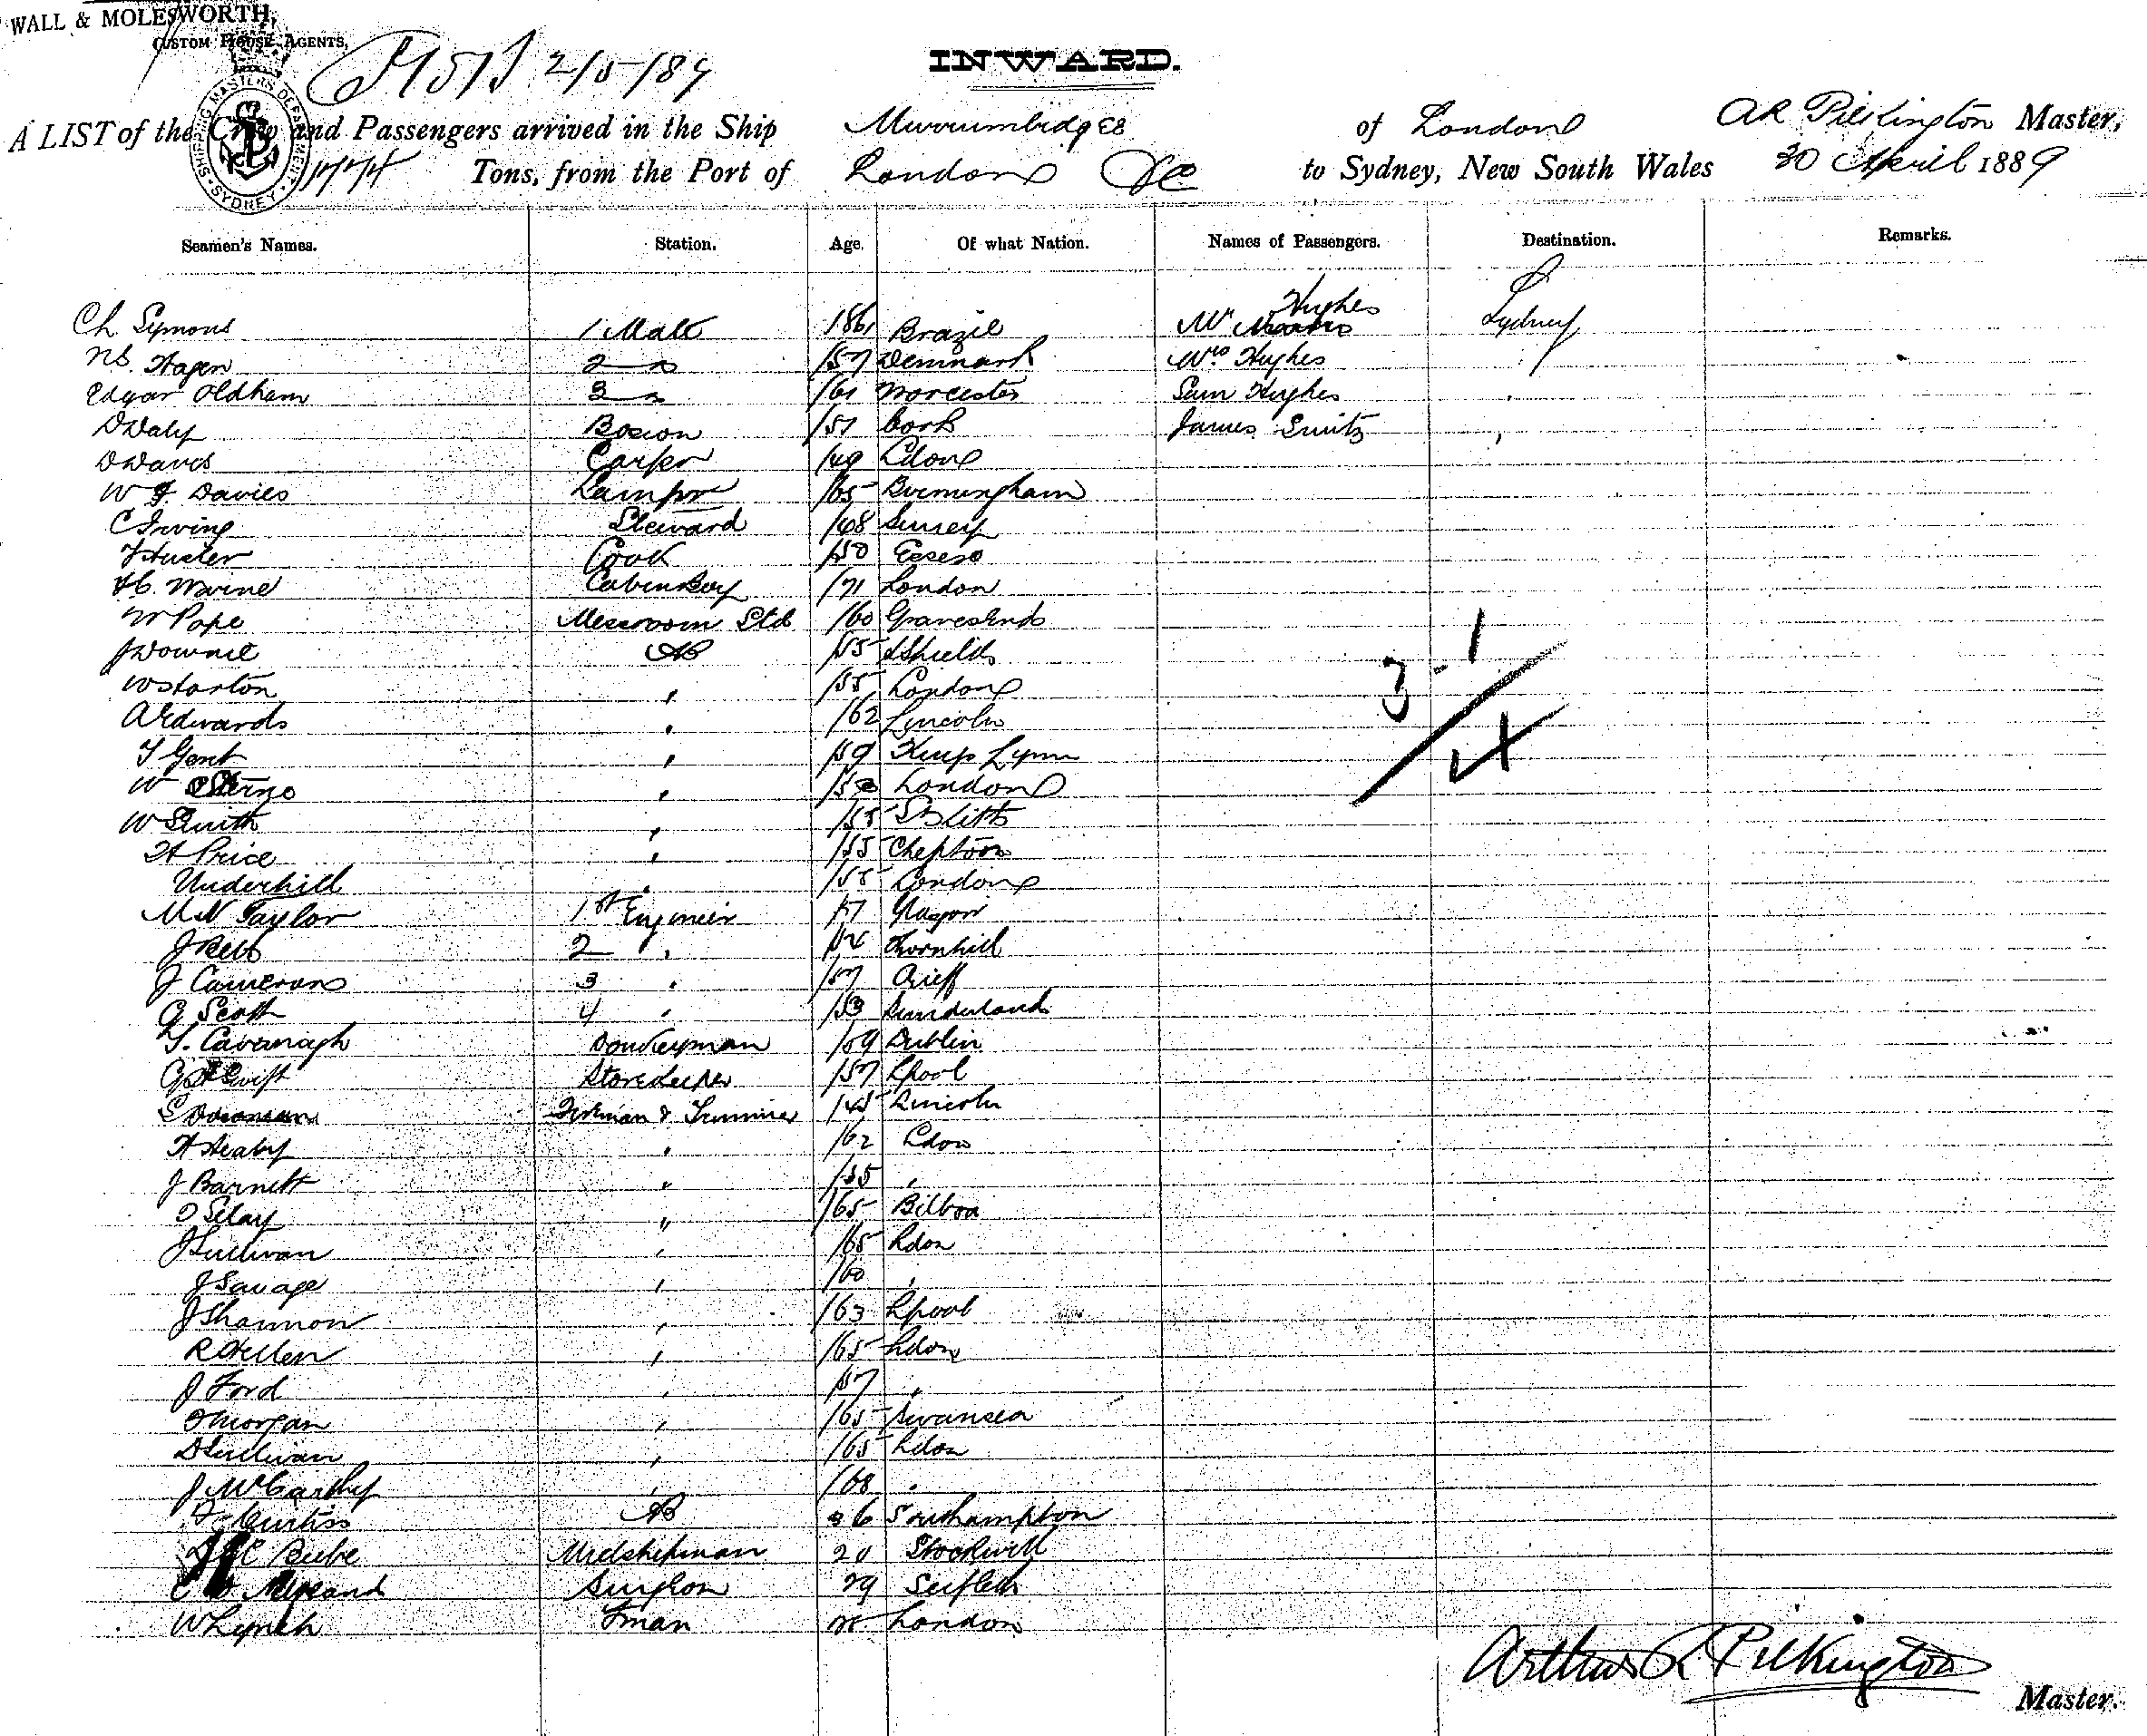 WALL & MOLESWORTH,
CUSTOM HOUSE AGENTS,
2/5/89
INWARD.
SHIPPING MASTERS DEPARTMENT SYDNEY
A LIST of the Crew and Passengers arrived in the Ship Murrumbidgee of London AR Pilkington Master,
Tons, from the Port of London &c to Sydney, New South Wales 30 April 1889
Seamen's Names. Station. Age. Of what Nation. Names of Passengers. Destination. Remarks.
Ch Symons 1 Mate 1861 Brazil Mr Hughes Sydney
Hagen 2 " /57 Denmark Mrs Hughes
Edgar Oldham 3 " /61 Worcester Sam Hughes
D Daly Bosion /57 Cork James Smith
D Davis Carpr /49 Ldon
W J Davies Lampr /65 Birmingham
C Irving Steward /48 Surrey
Cook /50 Essex
Cabin Boy /71 London
W Pope Messroom Std /60 Gravesend
J Downie AB /55 SShields
W Horton " /55 London
A Edwards " /62 Lincoln
T Gent " /59 Kings Lynn
W London
W Smith " /55
H Price " /55 Chepton
Underhill " /55 London
M N Taylor 1st Engineer Glasgow
J Bell 2 " Thornhill
J Cameron 3 " /57 Crieff
G Scott 4 " /53 Sunderland
T. Cavanagh Donkeyman /59 Dublin
Swift Storekeeper /57 Lpool
Fireman & Trimmer /45 Lincoln
H Healy " /62 Ldon
J Barnett " /55 "
" /65 Bilboa
J Sullivan " /65 Ldon
J Savage " /60 "
J Shannon " /63 Lpool
R Hellen " /65 Ldon
J Ford " /57 "
Morgan " /65 Swansea
D Sullivan " /65 Ldon
J McCarthy " /68 "
F Curtiss AB 26 Southampton
Beebe Midshipman 20 Stockwell
Surgeon 29
W Lynch Fman London
3-1
4
Arthur R Pilkington
Master.